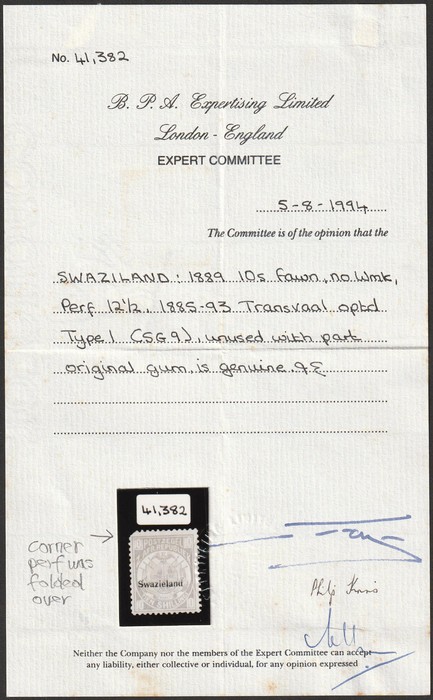 No. 41,382
B. P. A. Expertising Limited
London - England
EXPERT COMMITTEE
5-8-1994
The Committee is of the opinion that the
SWAZILAND: 1889 10s fawn, no Wmk,
Perf 12½, 1885-93 Transvaal optd
Type 1 (SG 9), unused with part
original gum, is genuine.
41,382
Swazieland
corner
perf was
folded
over
Philip
Neither the Company nor the members of the Expert Committee can accept
any liability, either collective or individual, for any opinion expressed